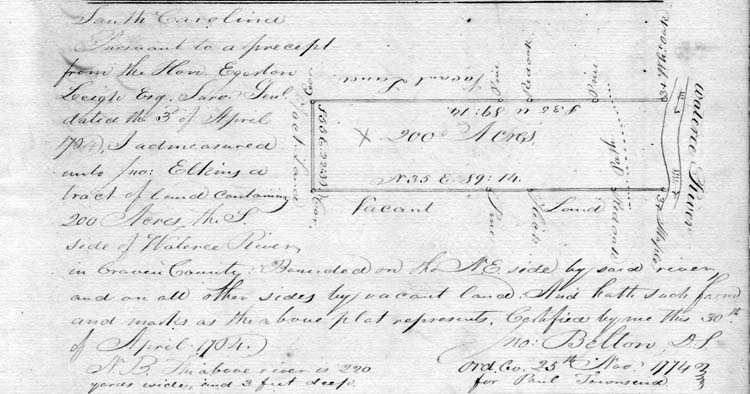 South Carolina
Pursuant to a precept
from the Hon. Egerton
Leigh Esq. Surv. Genl
dated the 3d of April
1764, I admeasured
unto Jno: Elkins a
tract of land containing
200 Acres, the S.
side of Wateree River,
in Craven County: Bounded on the N.E. side by said river
and on all other sides by vacant land: And hath such form
and marks as the above plat represents. Certified by me this 30th
of April 1764.)
Jno: Belton D.S.
N.B. The above river is 220
yards wide, and 3 feet deep.
Ord. Co. 25th Nov: 1774
for Paul Townsend
Vacant Land
Pine
Pine
S 35 W 89:14.
200 Acres
N 35 E 89:14.
Vacant Land
Pine
Vacant Land
Wateree River